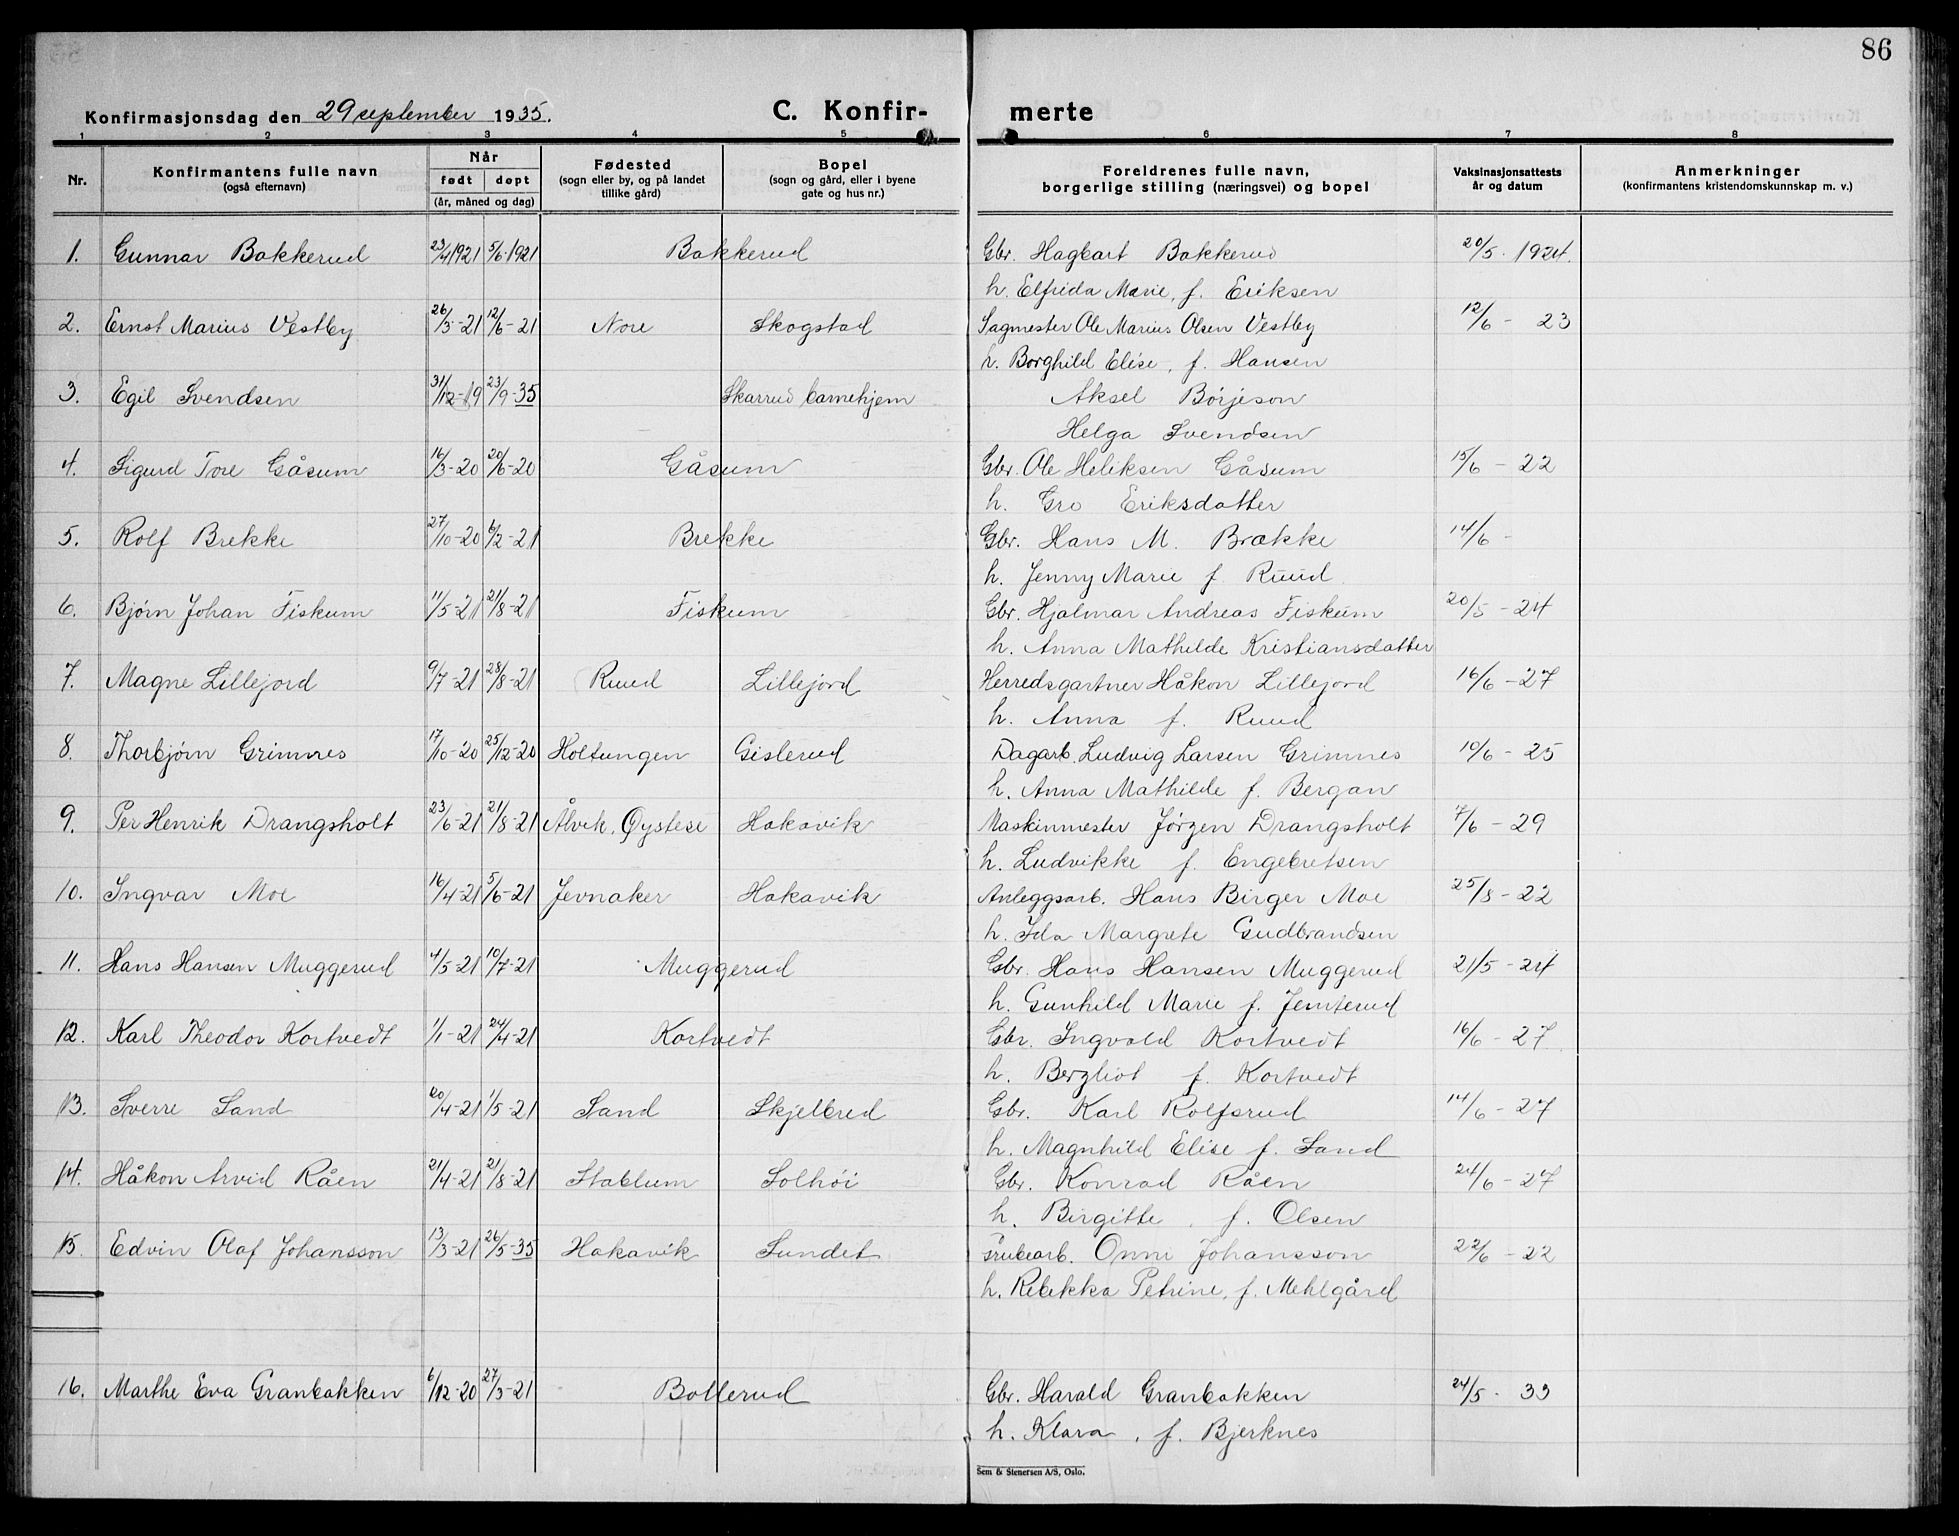 86
Konfirmasjonsdag den 29 september 1935.
C. Konfir-
merte
1 2 3 4 5 6 7 8
Nr.
Konfirmantens fulle navn
(også efternavn)
Når
født døpt
(år, måned og dag)
Fødested
(sogn eller by, og på landet
tillike gård)
Bopel
(sogn og gård, eller i byene
gate og hus nr.)
Foreldrenes fulle navn,
borgerlige stilling (næringsvei) og bopel
Vaksinasjonsattests
år og datum
Anmerkninger
(konfirmantens kristendomskunnskap m. v.)
1. Gunnar Bakkerud 23/4 1921 5/6 1921 Bakkerud Gbr. Hagbart Bakkerud 20/5. 1924.
h. Elfrida Marie, f. Eriksen
2. Ernst Marius Vestby 26/3-21 12/6-21 Nore Skogstad Sagmester Ole Marius Olsen Vestby 12/6 - 23
h. Borghild Elise, f. Hansen
3. Egil Svendsen 31/12-19 23/9-35 Skarrud barnehjem Aksel Börjeson
Helga Svendsen
4. Sigurd Tore Gåsum 16/3-20 20/6-20 Gåsum Gbr. Ole Heliksen Gåsum 15/6 - 22
h. Gro Eriksdatter
5. Rolf Brekke 27/10-20 6/2-21 Brekke Gbr. Hans M. Brække 14/6 -
h. Jenny Marie f. Ruud
6. Bjørn Johan Fiskum 11/5-21 21/8-21 Fiskum Gbr. Hjalmar Andreas Fiskum 20/5 - 24
h. Anna Mathilde Kristiansdatter
7. Magne Lillejord 9/7-21 28/8-21 Ruud Lillejord Herredsgartner Håkon Lillejord 16/6 - 27
h. Anna f. Ruud
8. Thorbjørn Grimnes 17/10-20 25/12-20 Holtungen Gislerud Dagarb. Ludvig Larsen Grimnes 10/6 - 25
h. Anna Mathilde f. Bergan
9. Per Henrik Drangsholt 23/6-21 21/8-21 Ålvik, Øystese Hakavik Maskinmester Jørgen Drangsholt 7/6 - 29
h. Ludvikke f. Engebretsen
10. Ingvar Moe 16/4-21 5/6-21 Jevnaker Hakavik Anleggsarb. Hans Birger Moe 25/8 - 22
h. Ida Margrete Gudbrandsen
11. Hans Hansen Muggerud 4/5-21 10/7-21 Muggerud Gbr. Hans Hansen Muggerud 21/5 - 24
h. Gunhild Marie f. Jemterud
12. Karl Theodor Kortvedt 1/1-21 24/4-21 Kortvedt Gbr. Ingvald Kortvedt 16/6 - 27
h. Bergliot f. Kortvedt
13. Sverre Sand 20/4-21 1/5-21 Sand Skjelbred Gbr. Karl Rolfsrud 14/6 - 27
h. Magnhild Elise f. Sand
14. Håkon Arvid Råen 21/4-21 21/8-21 Stablum Solhöi Gbr. Konrad Råen 24/6 - 27
h. Birgitte, f. Olsen
15. Edvin Olaf Johansson 13/3-21 26/5-35 Hakavik Sundet Grubearb. Onni Johansson 22/6 - 22
h. Rebekka Petrine, f. Mehlgård
16. Marthe Eva Granbakken 6/12-20 27/3-21 Bollerud Gbr. Harald Granbakken 24/5 - 33
h. Klara, f. Bjerknes
Sem & Stenersen A/S, Oslo.